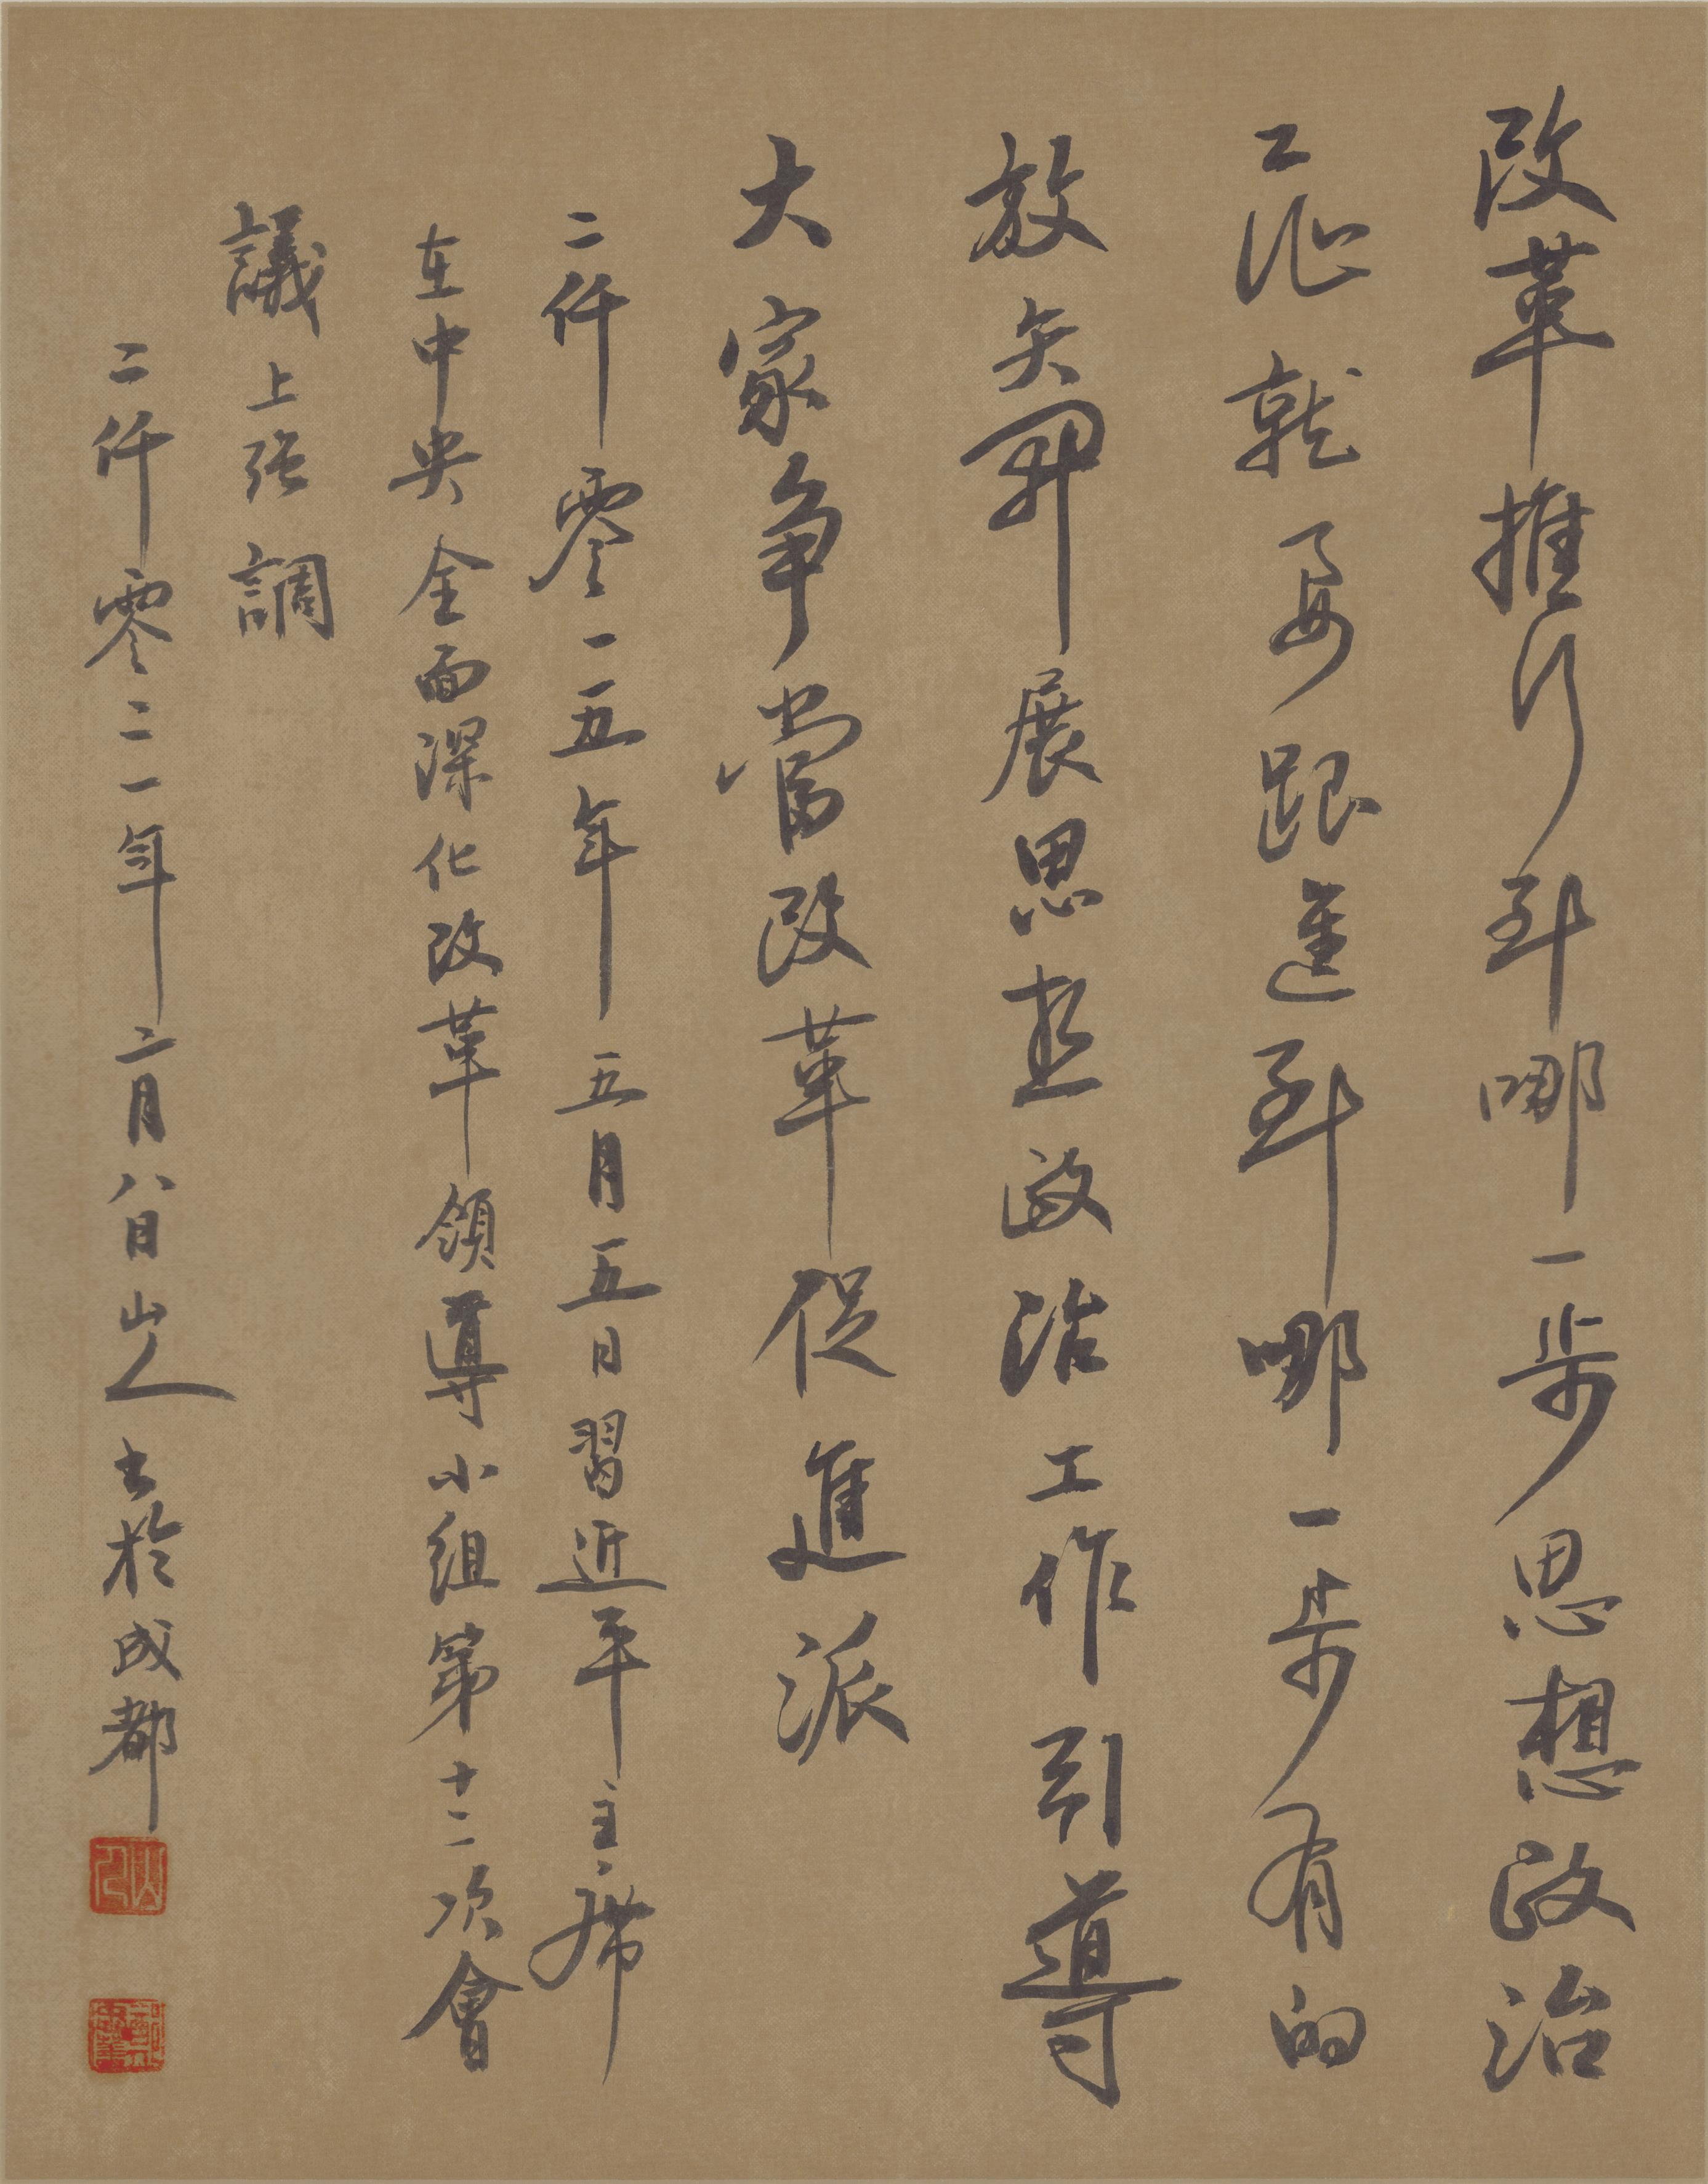 改革推行到哪一步思想政治
工作就要跟進到哪一步有的
放矢開展思想政治工作引導
大家争當改革促進派
二仟零一五年五月五日習近平主席
在中央全面深化改革領導小組第十二次會
議上强調
二仟零二一年二月八日山人書於成都
山人